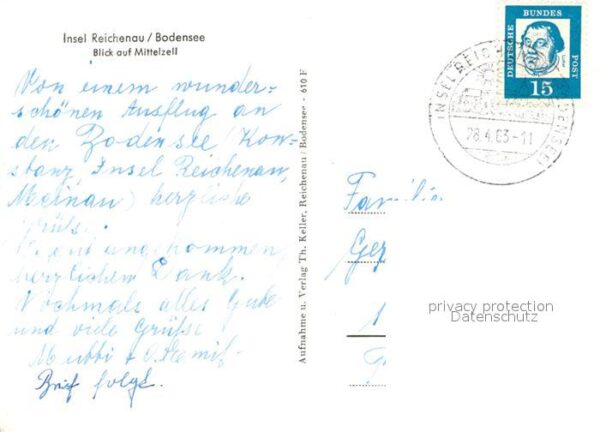 Insel Reichenau / Bodensee
Blick auf Mittelzell
Von einem wunder-
schönen Ausflug an
den Bodensee (Kon-
stanz, Insel Reichenau,
Mainau) herzliche
Grüße.
gut angekommen,
herzlichen Dank.
Nochmals alles Gute
und viele Grüße
Brief folgt.
Aufnahme u. Verlag Th. Keller, Reichenau / Bodensee - 610 F
DEUTSCHE BUNDES POST
15
28.4.63-11
Familie
privacy protection
Datenschutz